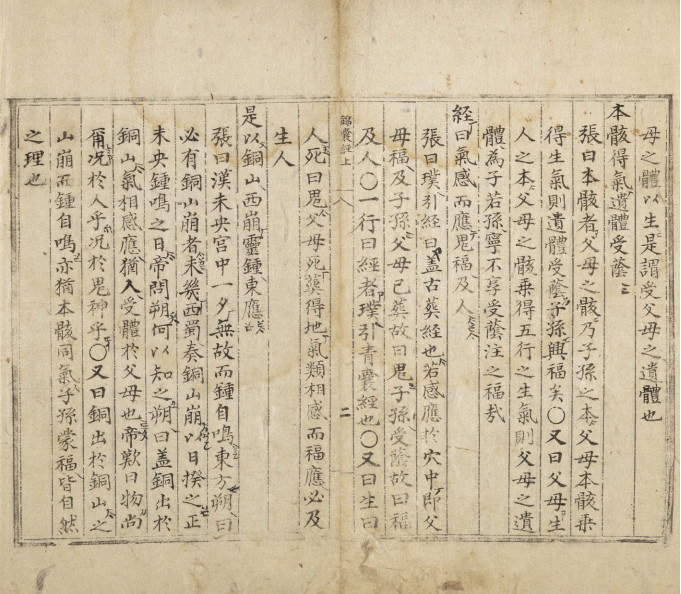 母之體以生是謂受父母之遺體也
本骸得氣遺體受蔭
張曰本骸者父母之骸乃子孫之本父母本骸乘
得生氣則遺體受蔭子孫興福矣○又曰父母生
人之本父母之骸乘得五行之生氣則父母之遺
體爲子若孫寧不享受蔭注之福哉
經曰氣感而應鬼福及人
張曰璞引經曰盖古葬經也若感應於穴中即父
母福及子孫父母已葬故曰鬼子孫受蔭故曰福
及人○一行曰經者璞引青囊經也○又曰生曰
錦囊註上 二
人死曰鬼父母死葬得地氣類相感而福應必及
生人
是以銅山西崩靈鍾東應
張曰漢未央宮中一夕無故而鍾自鳴東方朔曰
必有銅山崩者未幾西蜀奏銅山崩以日揆之正
未央鍾鳴之日帝問朔何以知之朔曰盖銅出於
銅山氣相感應猶人受體於父母也帝歎曰物尚
爾况於人乎况於鬼神乎○又曰銅出於銅山之
山崩而鍾自鳴亦猶本骸同氣子孫蒙福皆自然
之理也